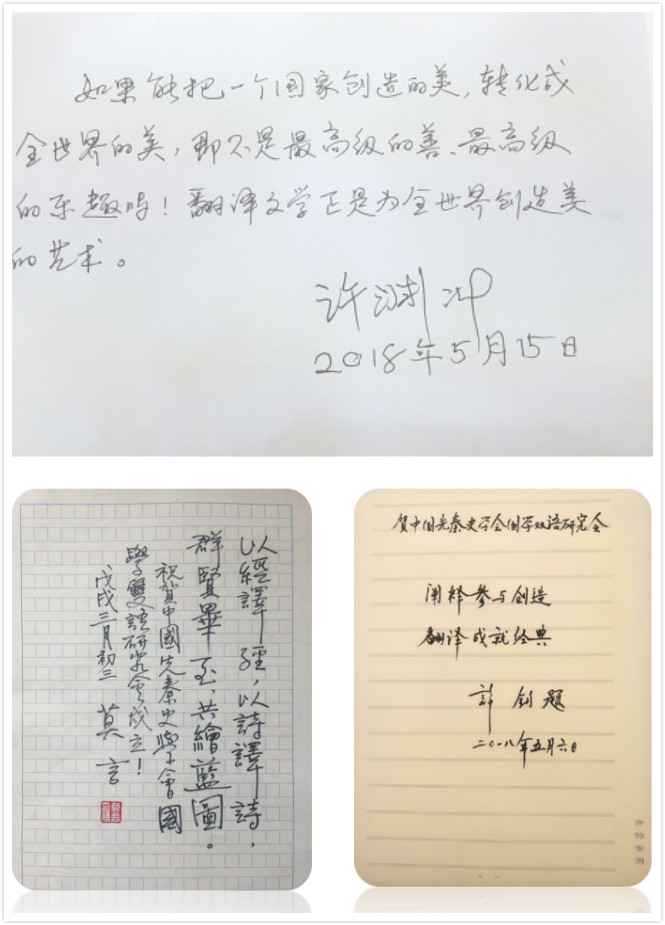 如果能把一个国家创造的美,转化成
全世界的美,那不是最高级的善、最高级
的乐趣吗!翻译文学正是为全世界创造美
的艺术。
许渊冲
2018年5月15日
以經譯經,以詩譯詩,
群賢畢至,共繪藍圖。
祝賀中國先秦史學會國
學雙語研究會成立!
戊戌三月初三 莫言
贺中国先秦史学会国学双语研究会
阐释参与创造
翻译成就经典
許钧题
二〇一八年五月六日
许钧专用